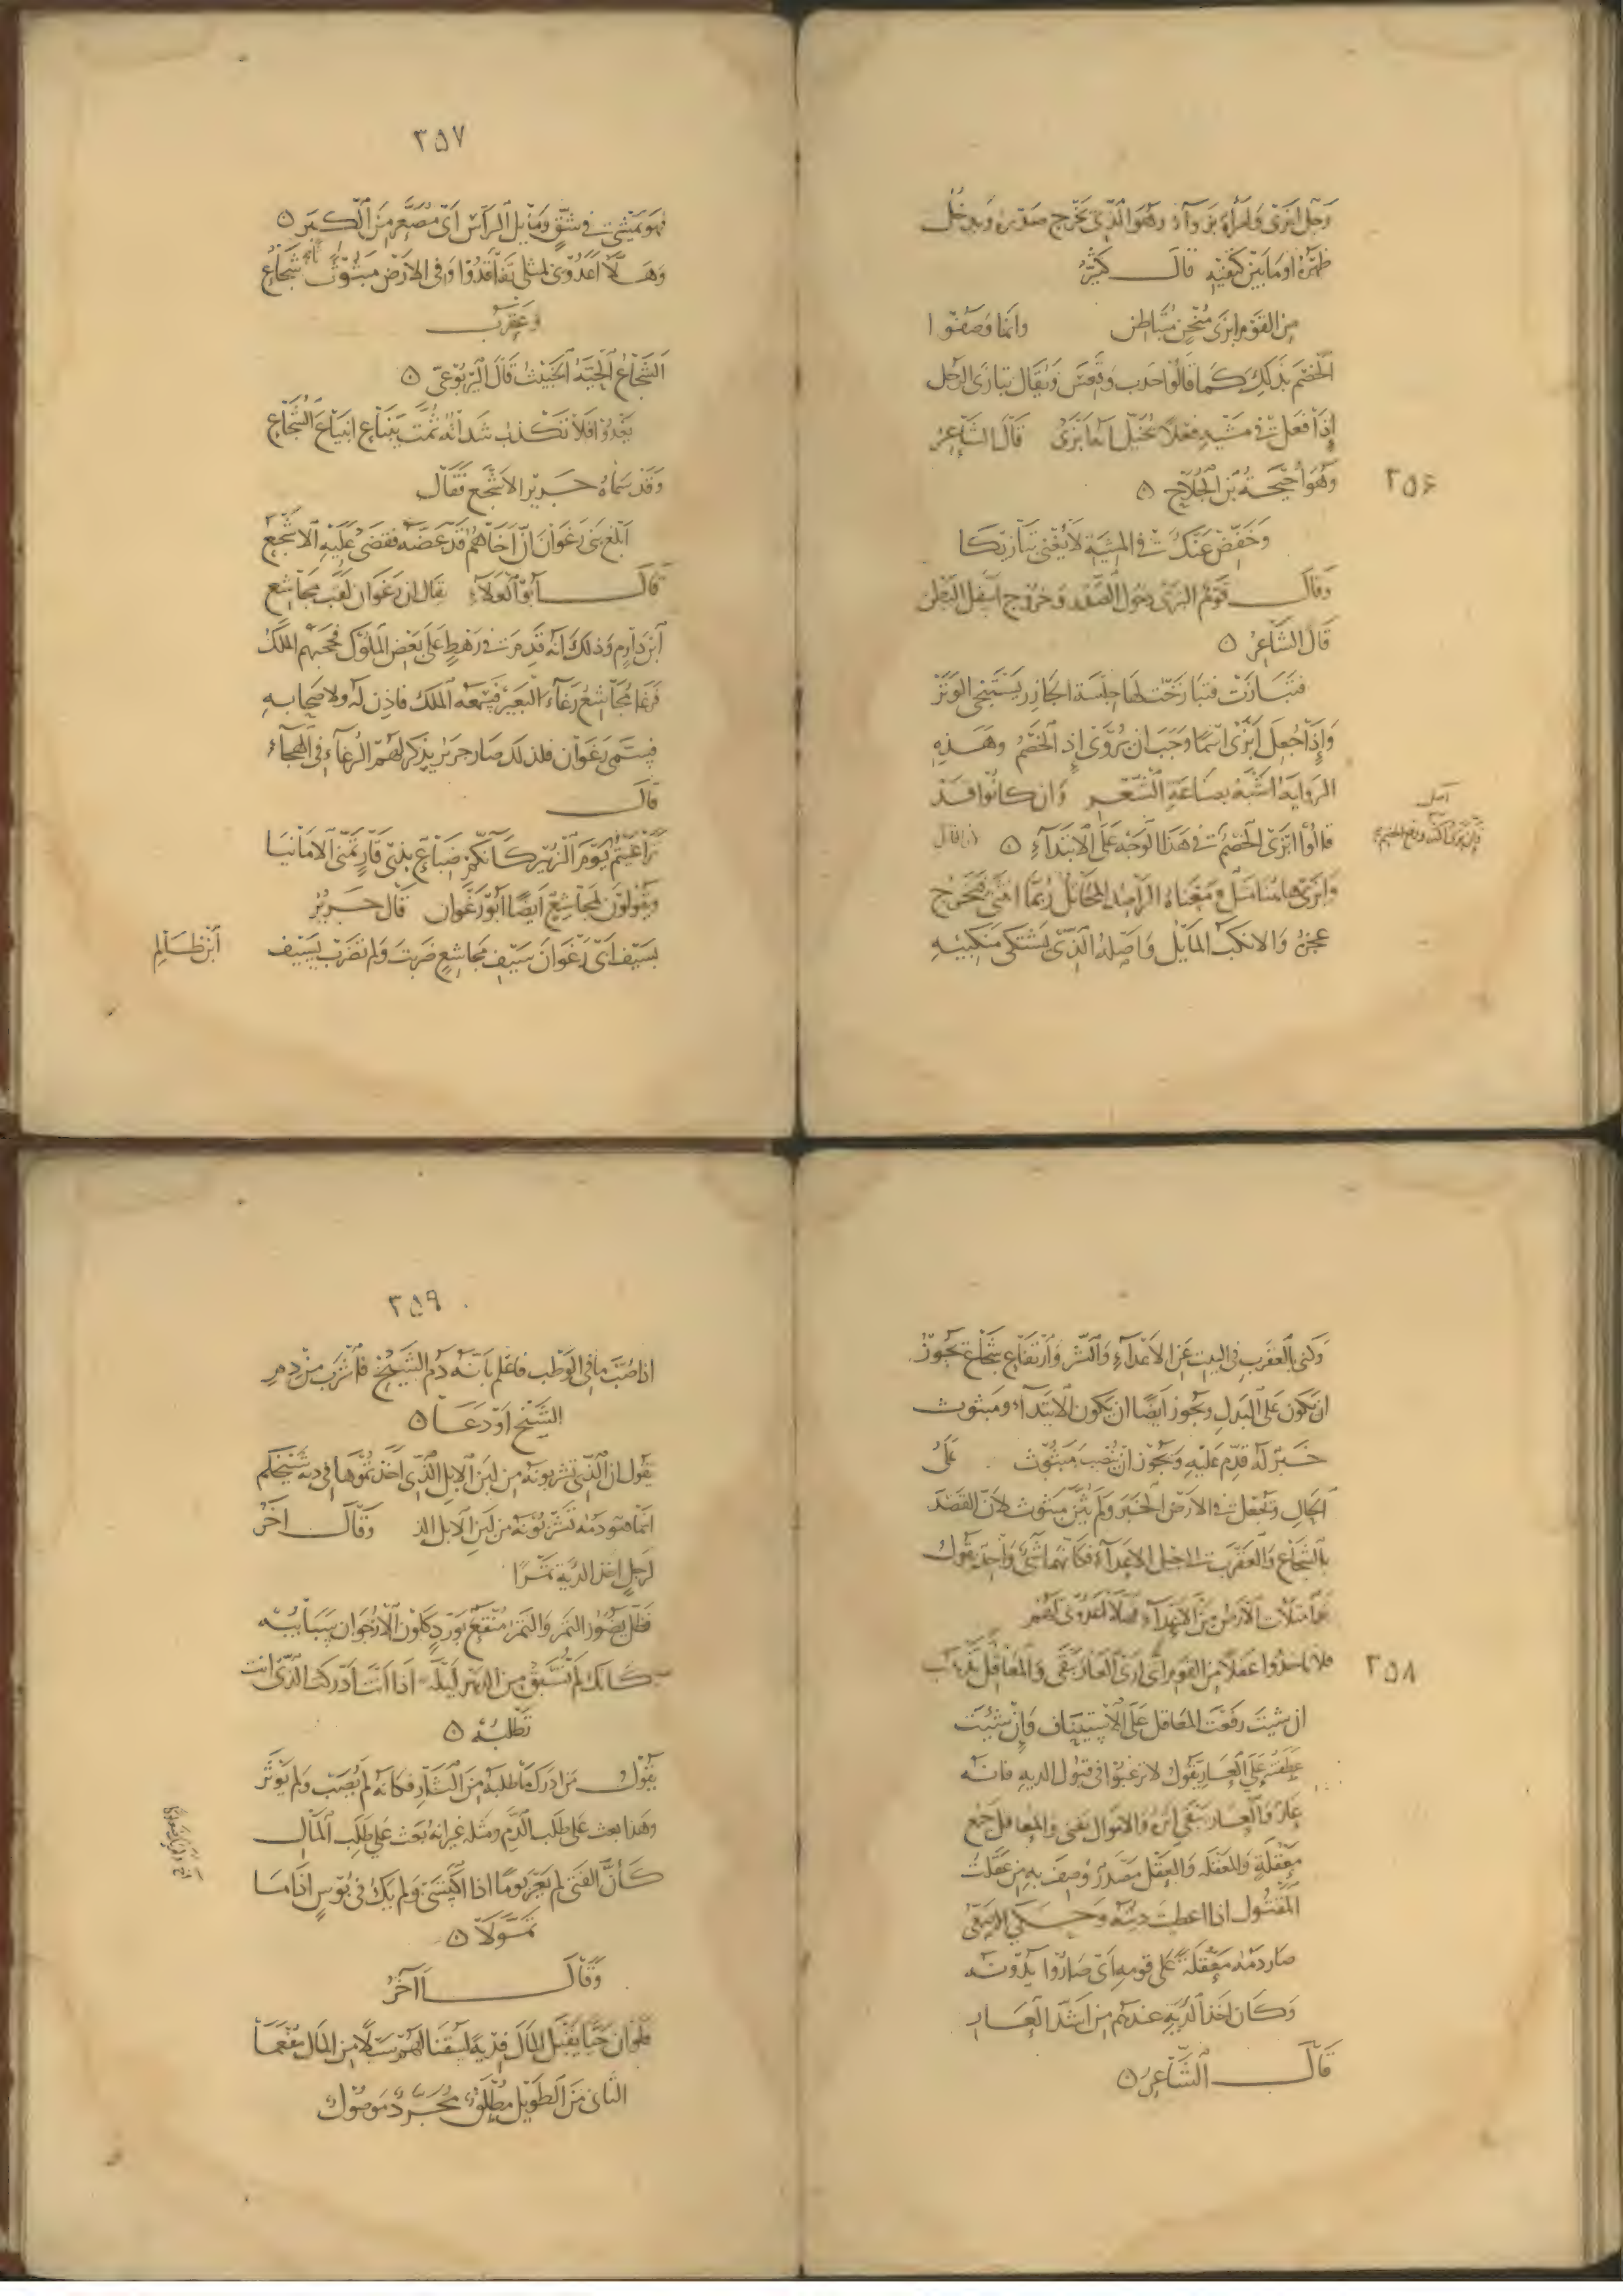 رجل ابزى وامرأة بزواء وهو الذى يخرج صدره ويدخل
ظهره او ما بين كتفيه قال كثير
من القوم ابزى منحن متباطن وانما وصفوا
الخصم بذلك كما قالوا احدب وقعس ويقال تبازى الرجل
إذا فعل فى مشيه فعلا يخيل انه ابزى قال الشاعر
وهو احيحة بن الجلاح
٢٥۶
وخفض عنك فى المشية لا يغنى تبازيكا
وقال قوم البزى دخول الصدر وخروج اسفل البطن
قال الشاعر
فتبازت فتبازخت لها جلسة الجازر يستنجى الوتر
وإذا جعل ابزى اسما وجب ان يروى اذ الخصم وهذه
الرواية اشبه بصناعة الشعر وان كانوا قد
قالوا ابزى الخصم فى هذا الوجه على الابتداء
اصل
وابزى هاهنا مثل ومعناه الراصد المخاتل ربما انثنى فيخرج
عجزه والانكب المايل واصله الذى يشتكى منكبيه
٢٥٧
فهو يمشى فى شق ومايل الراس اى مصعر من الكبر
وهلا اعدونى لمثلى تفاقدوا وفى الارض مبثوث شجاع
وعقرب
الشجاع الحية الخبيث قال اليربوعى
يعدو افلا تكذب شداته ثمت ينباع انبياع الشجاع
وقد سماه جرير الاشجع فقال
ابلغ بنى رغوان ان اخاهم قد عضه فقضى عليه الاشجع
قال ابو العلاء يقال ان رغوان لقب مجاشع
ابن دارم وذلك انه قدم فى رهط على بعض الملوك فحجبهم الملك
فرغا مجاشع رغاء البعير فسمعه الملك فاذن له ولاصحابه
فسمى رغوان فلذلك صار جرير يذكر لهم الرغاء فى الهجاء
قال
تراغيتم يوم الزبير كانكم ضباع بذى قار تمنى الامانيا
ويقولون لمجاشع ايضا ابو رغوان قال جرير
بسيف ابى رغوان سيف مجاشع ضربت ولم تضرب بسيف ابن ظالم
وكنى بالعقرب فى البيت عن الاعداء والشر وارتفاع شجاع يجوز
ان يكون على البدل ويجوز ايضا ان يكون الابتداء ومبثوث
خبر له قدم عليه ويجوز ان ينصب مبثوث على
الحال وتجعل فى الارض الخبر ولم يثن مبثوث لان القصد
بالشجاع والعقرب الى الاعداء فكانهما شىء واحد يقول
امتلات الارض من الاعداء فهلا اعدونى لهم
٢٥٨
فلا تاخذوا عقلا من القوم اننى ارى العار يبقى والمعاقل تذهب
ان شيت رفعت المعاقل على الاستيناف وان شئت
عطفته على العار يقول لا ترغبوا فى قبول الدية فانه
عار والعار يبقى اثره والاموال تفنى والمعاقل جمع
معقلة والمعقلة والعقل مصدر وصف به من عقلت
المقتول اذا اعطيت ديته وحكى الاصمعى
صار دمه معقلة على قومه اى صاروا يدونه
وكان اخذ الدية عندهم من اشد العار
قال الشاعر
٢٥٩
اذا صب ما فى الوطب فاعلم بانه دم الشيخ فاشرب من دم
الشيخ او دعا
يقول ان الذى تشربونه من لبن الابل الذى اخذتموها فى دية شيخكم
انما هو دمه تشربونه من لبن الابل وقال اخر
لرجل اخذ الدية تمرا
فظل يضوز التمر والتمر منقع بورد كلون الارجوان سبائبه
كانك لم تسبق من الدهر ليلة اذا انت ادركت الذى انت
تطلبه
يقول من ادرك ما طلبه من الثار فكانه لم يصب ولم يوتر
وهذا بعث على طلب الدم ومثله غير انه بعث على طلب المال
كأن الفتى لم يعر يوما اذا اكتسى ولم يك فى بؤس اذا ما
تمولا
وقال آخر
فلو ان حيا يقبل المال فدية لسقنا لهم سيلا من المال مفعما
الثانى من الطويل مطلق مجرد موصول